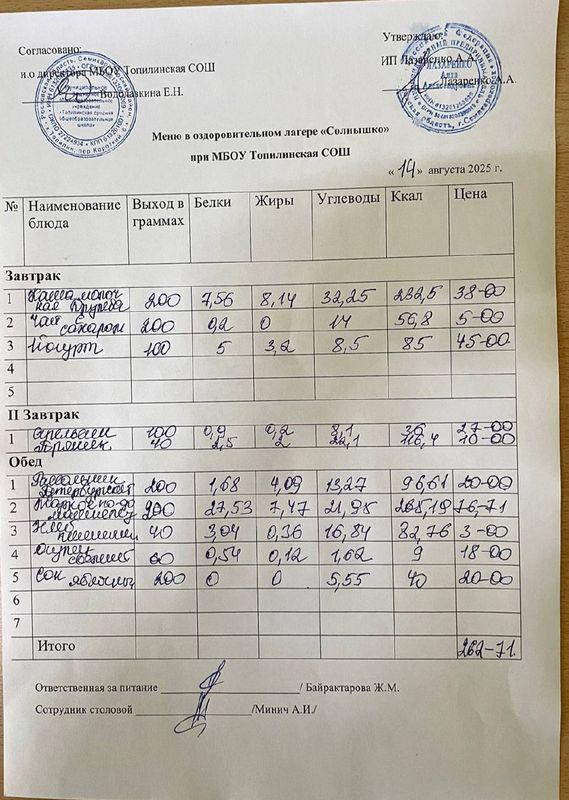 Согласовано:
Утверждаю:
и.о директора МБОУ Топилинская СОШ
ИП Лазаренко А.А.
Володазкина Е.Н.
Лазаренко А.А.
Меню в оздоровительном лагере «Солнышко»
при МБОУ Топилинская СОШ
«14» августа 2025 г.
№ Наименование блюда Выход в граммах Белки Жиры Углеводы Ккал Цена
Завтрак
1 Каша молоч
ная Дружба 200 7,56 8,14 32,25 232,5 38-00
2 Чай
сахаром 200 0,2 0 14 56,8 5-00
3 Йогурт 100 5 3,2 8,5 85 45-00
4
5
II Завтрак
1 Апельсин 100 0,9 0,2 8,1 36 27-00
Пряник 40 2,5 2 22,1 116,4 10-00
Обед
1 Рассольник
Петербургский 200 1,68 4,09 13,27 96,61 20-00
2 Жаркое по-до
машнему 200 27,53 7,47 21,95 76-71
3 Хлеб
пшеничный 40 3,04 0,36 16,84 82,76 3-00
4 Огурец
свежий 60 0,54 0,12 1,62 9 18-00
5 Сок
яблочный 200 0 0 5,55 40 20-00
6
7
Итого 262-71
Ответственная за питание / Байрактарова Ж.М.
Сотрудник столовой /Минич А.И./